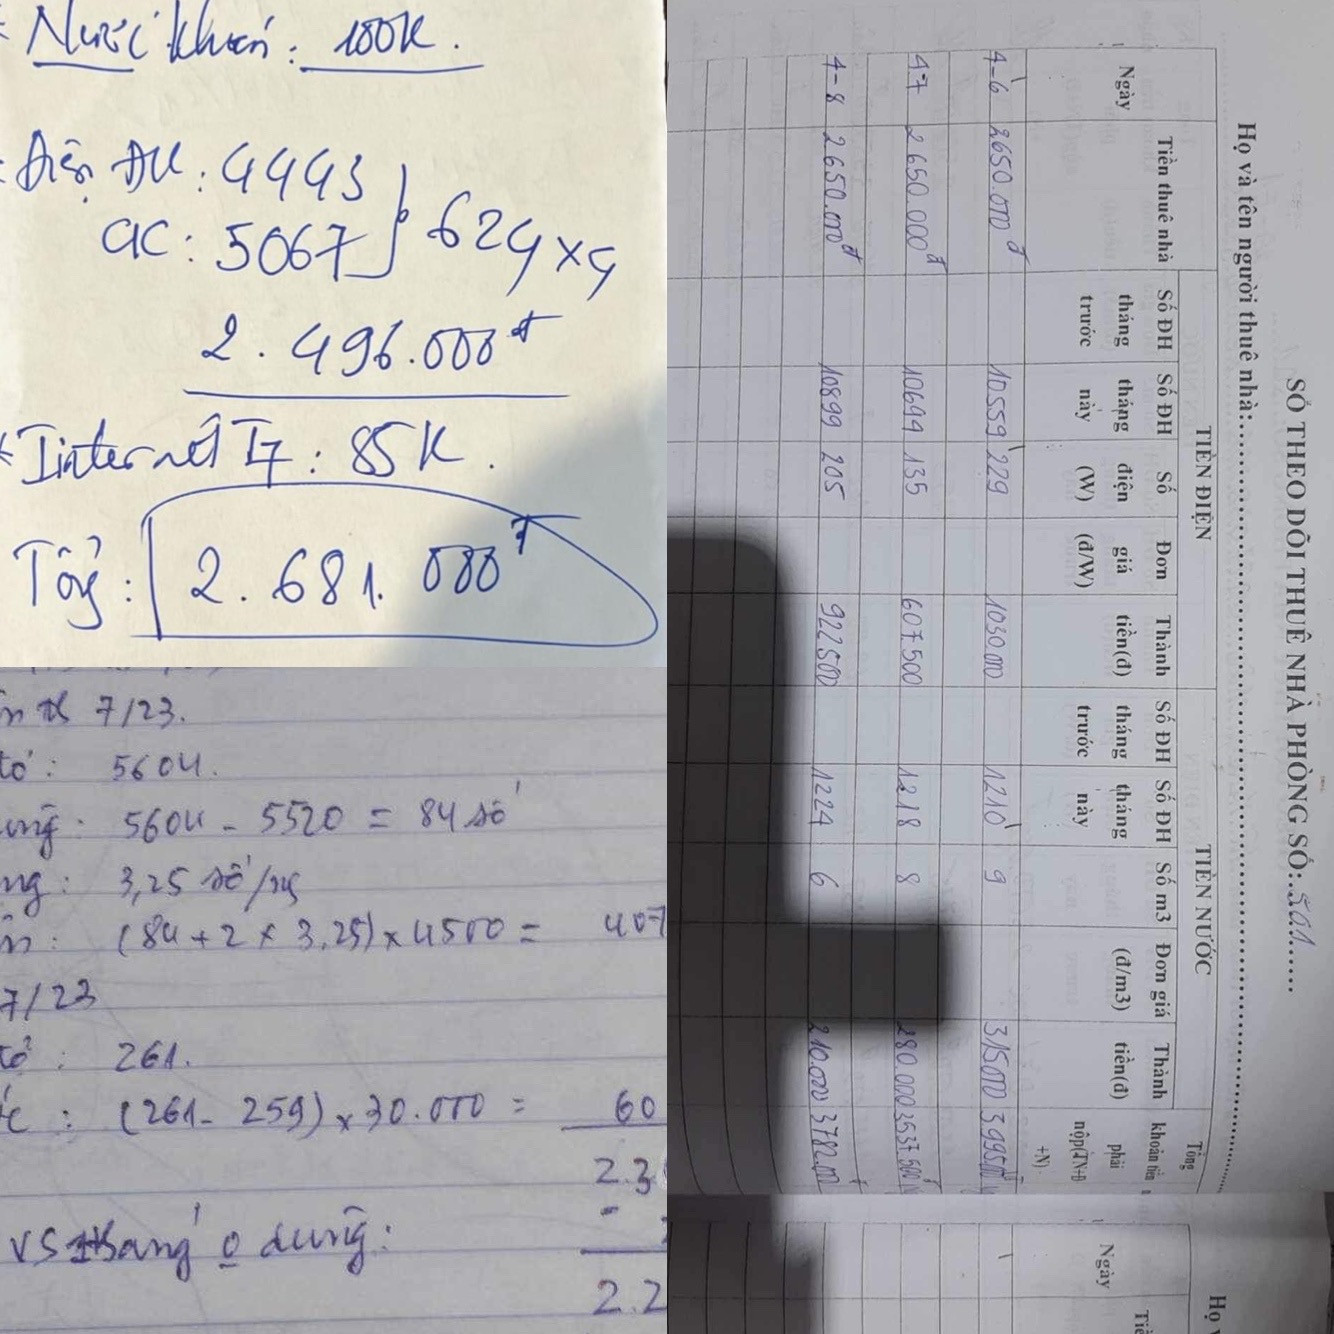 Nước khoán: 100K.
Điện ĐK: 4443
CK: 5067 } 624 x 4
2.496.000đ
Internet T7: 85K.
Tổng: 2.681.000đ
7/23.
5604.
5604 - 5520 = 84 số
3,25 số/ng
(84 + 2 x 3,25) x 4500 = 407
7/23
261.
(261 - 259) x 30.000 = 60
2.3
VS tháng o dùng:
2.2
SỔ THEO DÕI THUÊ NHÀ PHÒNG SỐ: 501
Họ và tên người thuê nhà:
TIỀN ĐIỆN TIỀN NƯỚC
Ngày Tiền thuê nhà Số ĐH tháng trước Số ĐH tháng này Số điện (W) Đơn giá (đ/W) Thành tiền(đ) Số ĐH tháng trước Số ĐH tháng này Số m3 Đơn giá (đ/m3) Thành tiền(đ) Tổng khoản tiền phải nộp(đN+Đ+N)
4-6 2650.000đ 10559 229 1030.000 1210 9 315000 3995000
4-7 2650.000đ 10694 135 607.500 1218 8 280.000 3537500
4-8 2650.000đ 10899 205 922500 1224 6 210.000 3782.
Ngày
Họ